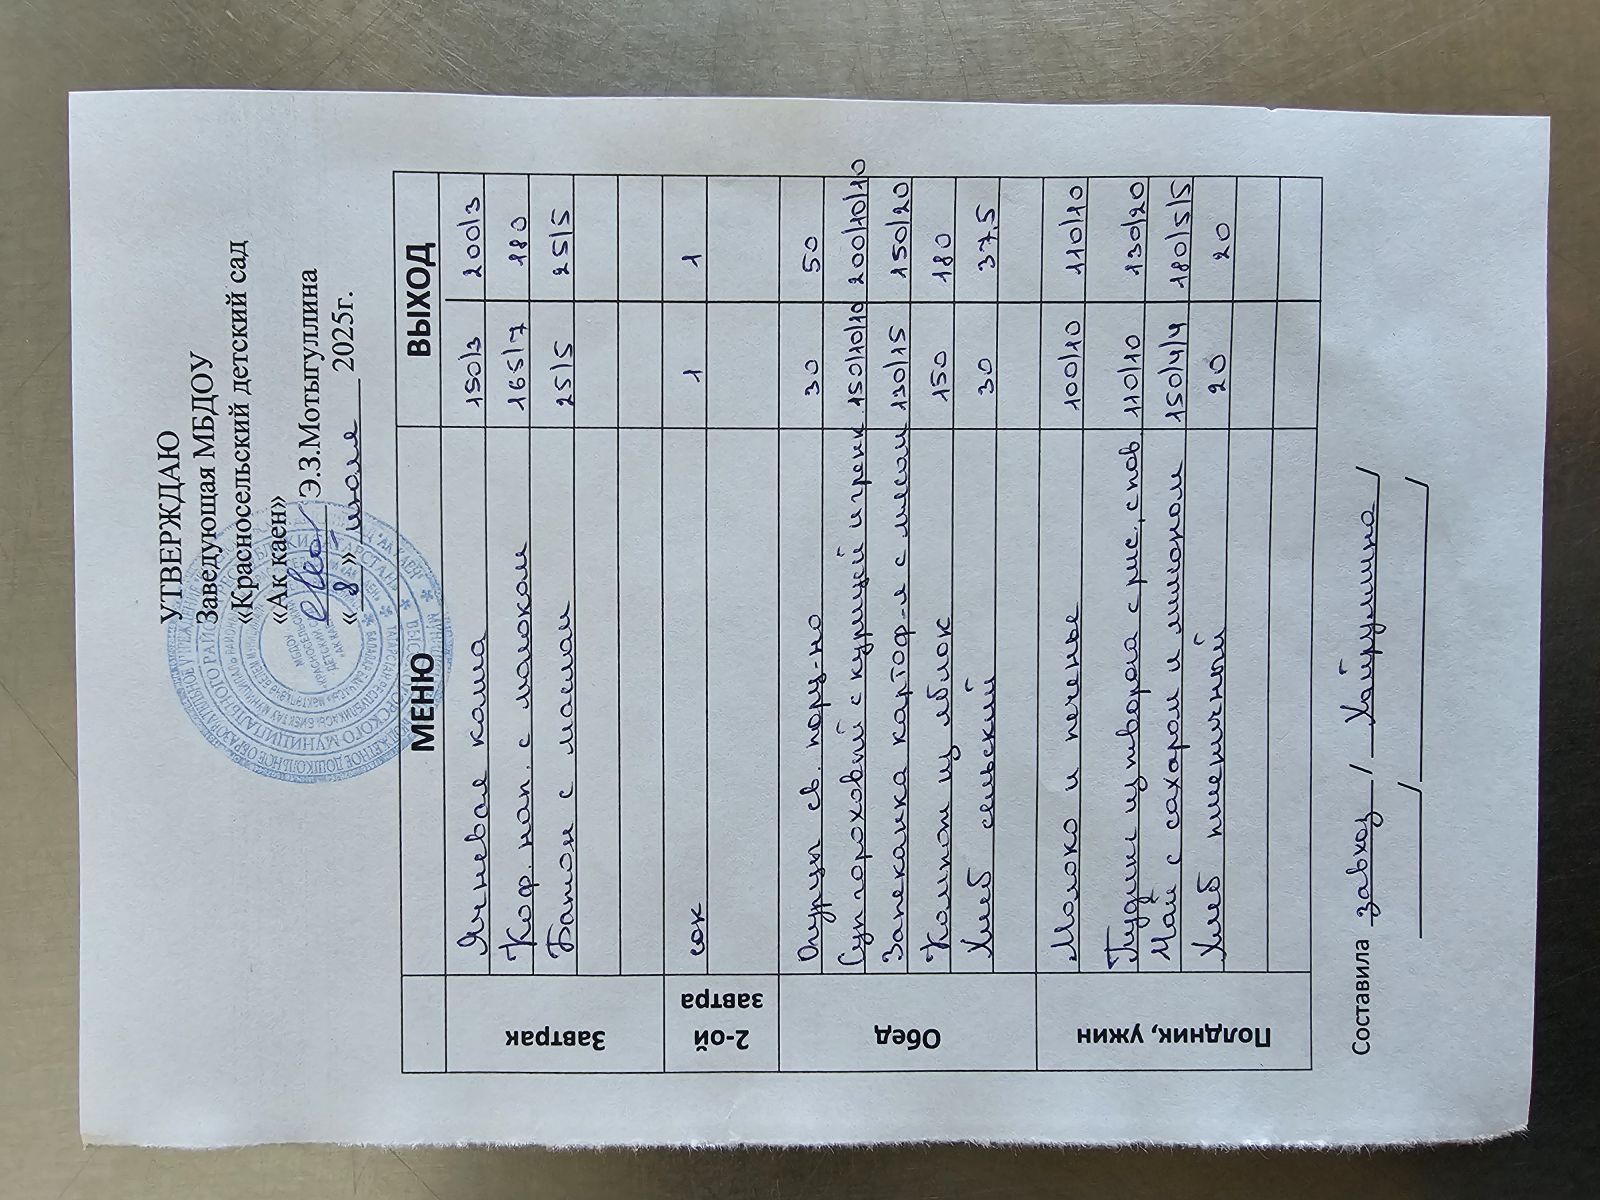 УТВЕРЖДАЮ
Заведующая МБДОУ
«Красносельский детский сад
«Ак каен»
Э.З.Мотыгуллина
« 8 » июля 2025г.
МЕНЮ ВЫХОД
Завтрак
Ячневая каша 150/3 200/3
Коф. нап. с молоком 165/7 180
Батон с маслом 25/5 25/5
2-ой завтра
сок 1 1
Обед
Огурцы св. пору-но 30 50
Суп гороховый с курицей и гренк 150/10/10 200/10/10
Запеканка картоф-я с мясом 130/15 150/20
Компот из яблок 150 180
Хлеб сельский 30 37,5
Полдник, ужин
Молоко и печенье 100/10 110/10
Пудинг из творога с рис. с пов. 110/10 130/20
Чай с сахаром и лимоном 150/4/4 180/5/5
Хлеб пшеничный 20 20
Составила завхоз / Хайрулина /